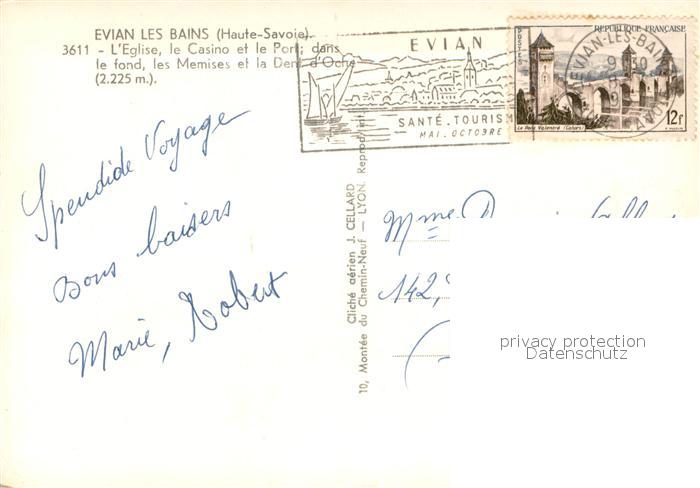 EVIAN LES BAINS (Haute-Savoie).
3611 - L'Eglise, le Casino et le Port; dans
le fond, les Memises et la Dent d'Oche
(2.225 m.).
EVIAN
SANTÉ. TOURISM
MAI. OCTOBRE
RÉPUBLIQUE FRANÇAISE
POSTES
EVIAN-LES-BAIN
9
12f
Le Pont Valentré (Cahors)
Spendide Voyage
Bons baisers
Marie, Robert
Cliché aérien J. CELLARD
10, Montée du Chemin-Neuf — LYON. Reprod. int.
Mme
142,
privacy protection
Datenschutz